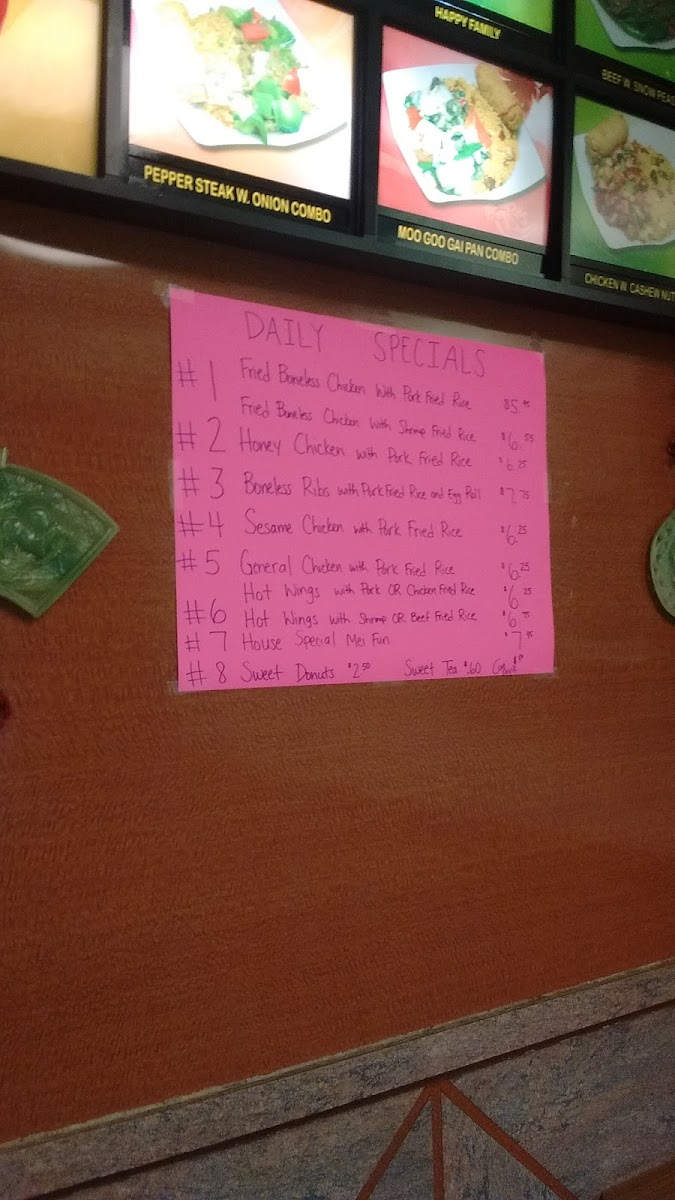 HAPPY FAMILY
BEEF W. SNOW PEAS
PEPPER STEAK W. ONION COMBO
MOO GOO GAI PAN COMBO
CHICKEN W. CASHEW NUT
DAILY SPECIALS
#1 Fried Boneless Chicken with Pork Fried Rice $5.95
Fried Boneless Chicken with Shrimp Fried Rice $6.55
#2 Honey Chicken with Pork Fried Rice $6.25
#3 Boneless Ribs with Pork Fried Rice and Egg Roll $7.75
#4 Sesame Chicken with Pork Fried Rice $6.25
#5 General Chicken with Pork Fried Rice $6.25
Hot Wings with Pork OR Chicken Fried Rice $6.25
#6 Hot Wings with Shrimp OR Beef Fried Rice $6.75
#7 House Special Mei Fun $7.95
#8 Sweet Donuts $2.50 Sweet Tea $.60